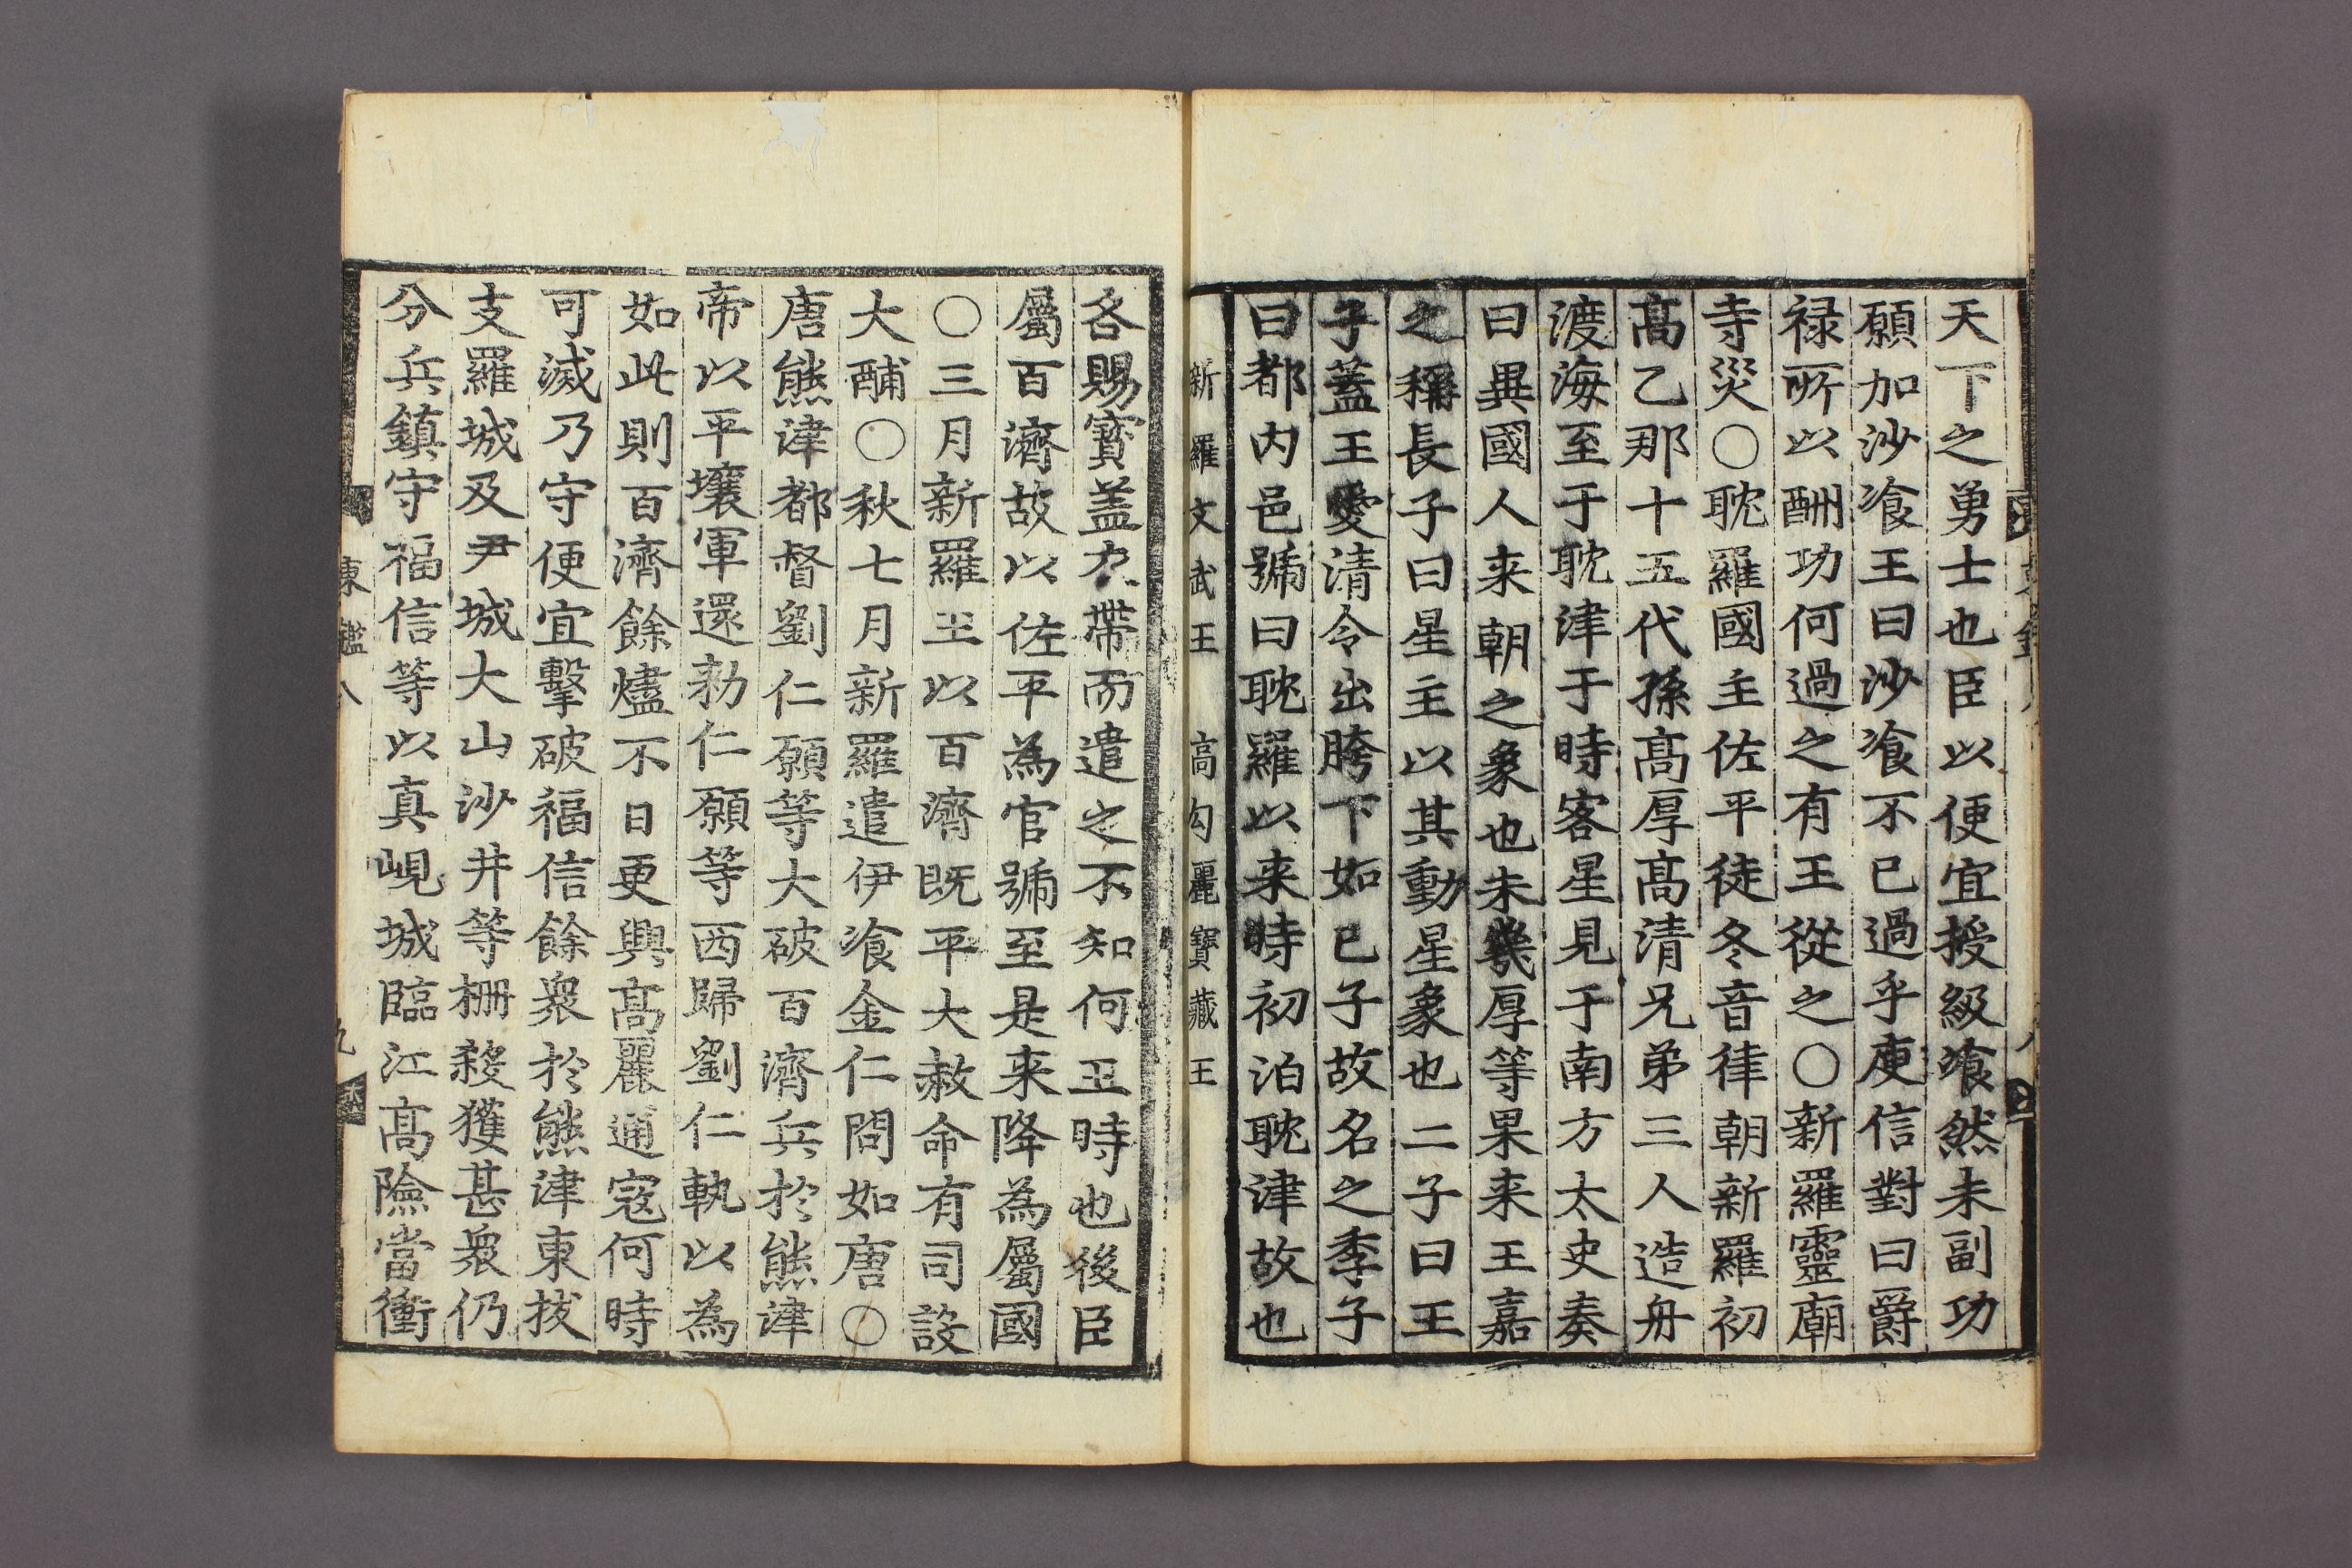 天下之勇士也臣以便宜授級飡然未副功
願加沙飡王曰沙飡不已過乎庾信對曰爵
禄所以酬功何過之有王從之○新羅靈廟
寺災○耽羅國主佐平徒冬音律朝新羅初
髙乙那十五代孫髙厚髙清兄弟三人造舟
渡海至于耽津于時客星見于南方太史奏
曰異國人来朝之象也未幾厚等果来王嘉
之稱長子曰星主以其動星象也二子曰王
子蓋王愛清令出胯下如已子故名之季子
曰都内邑號曰耽羅以来時初泊耽津故也
新羅文武王 高句麗寶藏王
各賜寳盖衣帶而遣之不知何王時也後臣
屬百濟故以佐平為官號至是来降為屬國
○三月新羅王以百濟既平大赦命有司設
大酺○秋七月新羅遣伊飡金仁問如唐○
唐熊津都督劉仁願等大破百濟兵於熊津
帝以平壤軍還勑仁願等西歸劉仁軌以為
如此則百濟餘燼不日更興髙麗逋寇何時
可滅乃守便宜擊破福信餘衆於熊津東拔
支羅城及尹城大山沙井等柵殺獲甚衆仍
分兵鎮守福信等以真峴城臨江髙險當衝
東鑑八 九